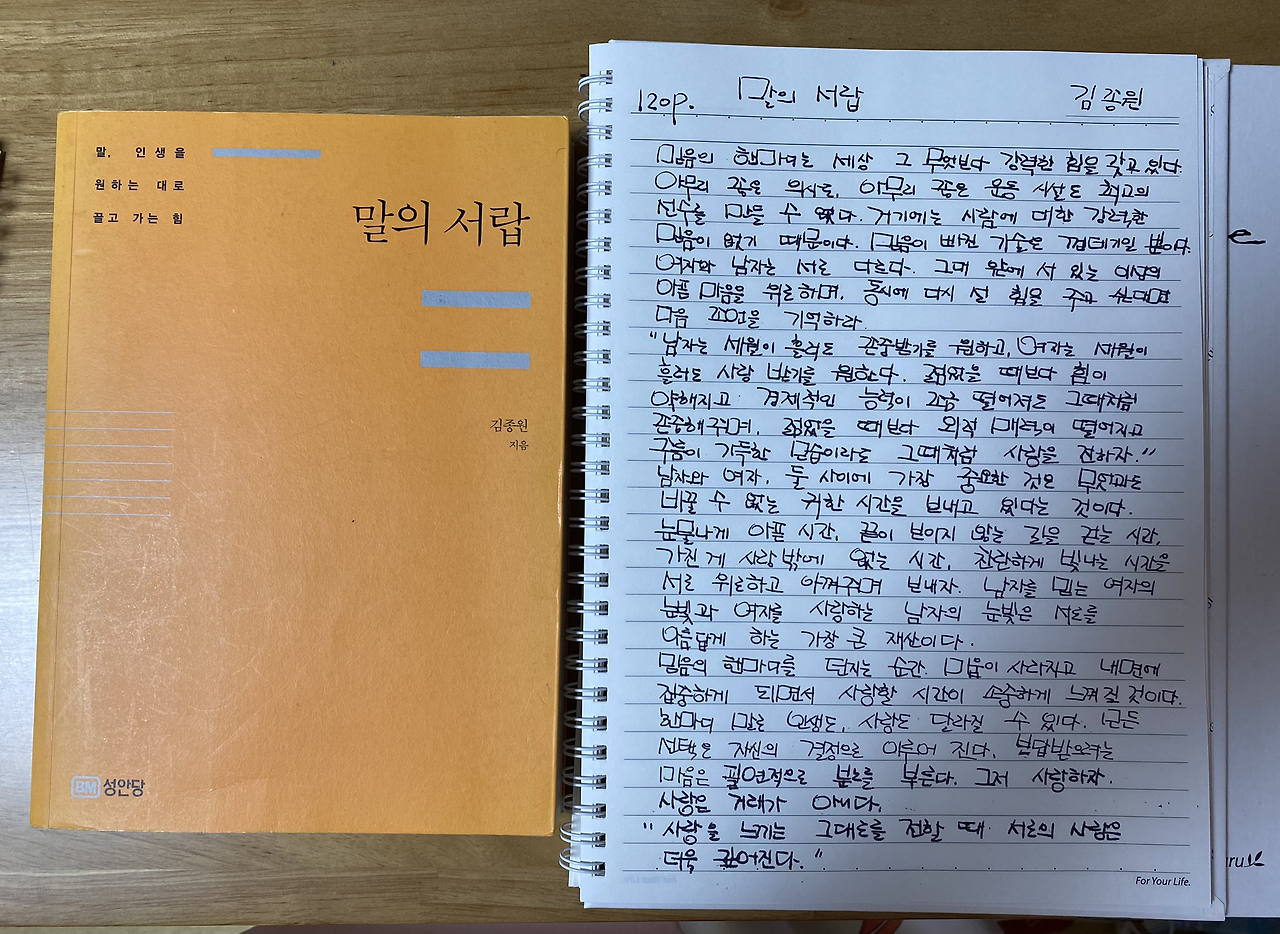 말, 인생을
원하는 대로
끌고 가는 힘
말의 서랍
김종원
지음
BM 성안당
120p. 말의 서랍 김종원
믿음의 한마디는 세상 그 무엇보다 강력한 힘을 갖고 있다.
아무리 좋은 의사도, 아무리 좋은 운동 시설도 최고의
선수를 만들 수 없다. 거기에는 사람에 대한 강력한
믿음이 없기 때문이다. 믿음이 빠진 기술은 껍데기일 뿐이다.
여자와 남자는 서로 다르다. 그대 앞에 서 있는 이성의
아픈 마음을 위로하며, 동시에 다시 설 힘을 주고 싶다면
다음 조언을 기억하라.
"남자는 세월이 흘러도 존중받기를 원하고, 여자는 세월이
흘러도 사랑 받기를 원한다. 젊었을 때보다 힘이
약해지고 경제적인 능력이 조금 떨어져도 그때처럼
존중해주며, 젊었을 때보다 외적 매력이 떨어지고
주름이 가득한 모습이라도 그때처럼 사랑을 전하자."
남자와 여자, 둘 사이에 가장 중요한 것은 무엇과도
바꿀 수 없는 귀한 시간을 보내고 있다는 것이다.
눈물나게 아플 시간, 끝이 보이지 않는 길을 걷는 시간,
가진 게 사랑밖에 없는 시간, 찬란하게 빛나는 시간을
서로 위로하고 아껴주며 보내자. 남자를 믿는 여자의
눈빛과 여자를 사랑하는 남자의 눈빛은 서로를
아름답게 하는 가장 큰 재산이다.
믿음의 한마디를 던지는 순간. 미움이 사라지고 내면에
집중하게 되면서 사랑할 시간이 소중하게 느껴질 것이다.
한마디 말로 인생도, 사랑도 달라질 수 있다. 모든
선택은 자신의 결정으로 이루어 진다. 보답받으려는
마음은 필연적으로 분노를 부른다. 그저 사랑하자.
사랑은 거래가 아니다.
"사랑을 느끼는 그대로를 전할 때 서로의 사랑은
더욱 깊어진다."
For Your Life.